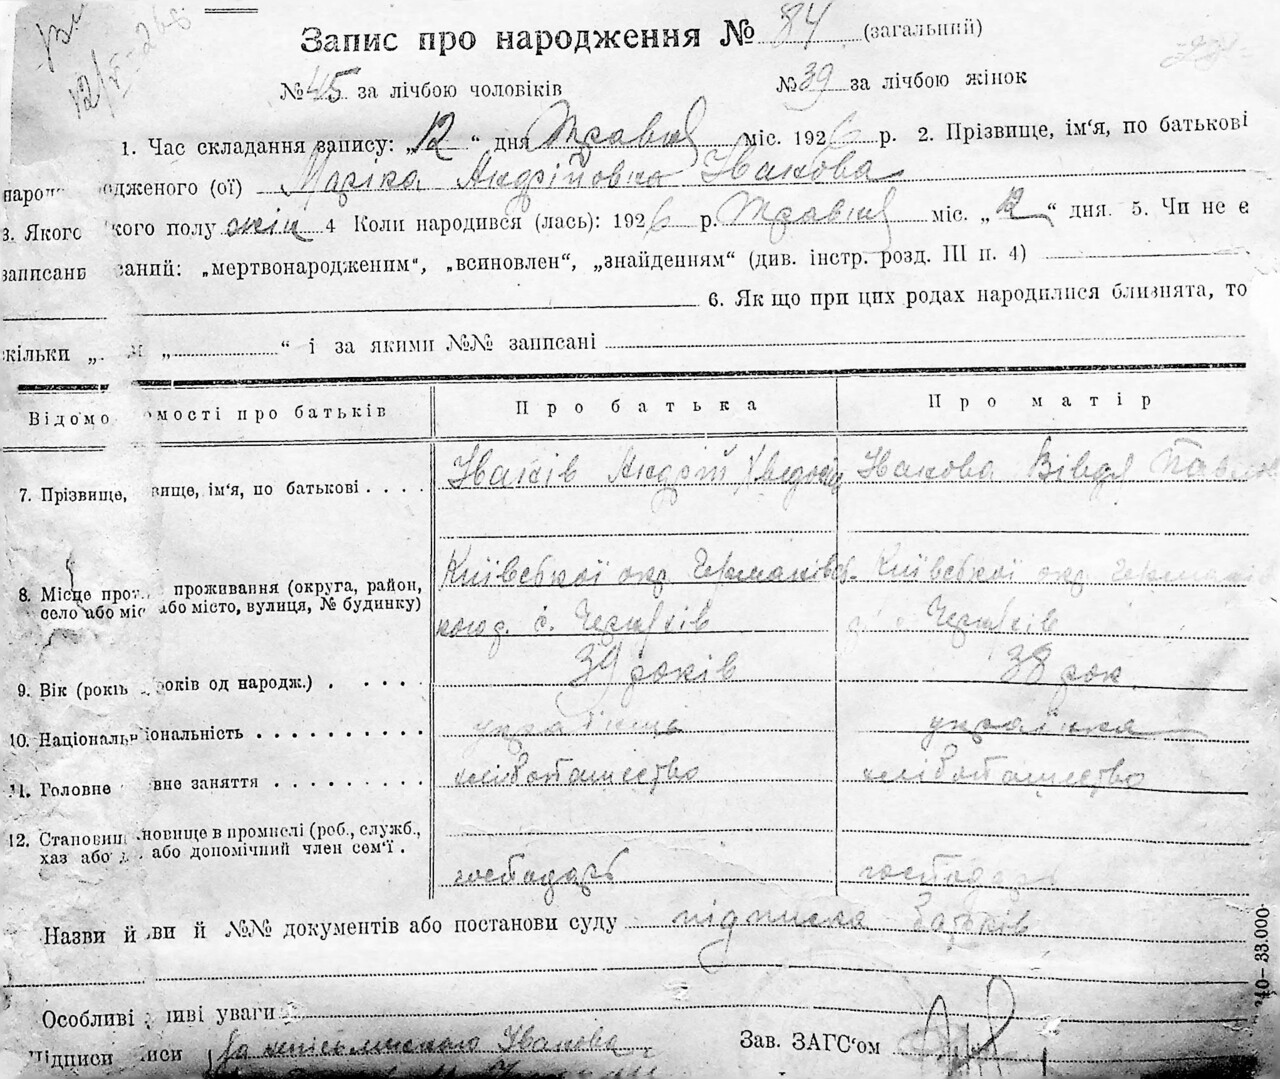 12/V-26р.
Запис про народження № 84 (загальний)
№ 45 за лічбою чоловіків № 39 за лічбою жінок
1. Час складання запису: „12“ дня Травня міс. 1926 р. 2. Прізвище, ім‘я, по батькові
народ одженого (ої) Марія Андрійовна Іванова
3. Якого кого полу жін 4 Коли народився (лась): 1926 р. Травня міс. „12“ дня. 5. Чи не є
записань саний: „мертвонародженим“, „всиновлен“, „знайденням“ (див. інстр. розд. III п. 4)
6. Як що при цих родах народилися близнята, то
скільки „ м „ “ і за якими №№ записані
Відомо мості про батьків Про батька Про матір
7. Прізвище, вище, ім‘я, по батькові . . . . Іванів Андрій Іванова
8. Місце прож проживання (округа, район, Київської окр. Германівськ. Київської окр.
село або міс або місто, вулиця, № будинку) с.
9. Вік (років років од народж.) . . . . . 39 років 38 рок.
10. Національн іональність . . . . . . . . . . українець українка
11. Головне вне заняття . . . . . . . . . хліборобство хліборобство
12. Становищ новище в промислі (роб., служб.,
хаз або або допомічний член сем‘ї . господарь господарь
Назви й ви й №№ документів або постанови суду підписка батьків
Особливі ливі уваги
Підписи иси За неписьменного Іванова Зав. ЗАГС‘ом
340–33.000